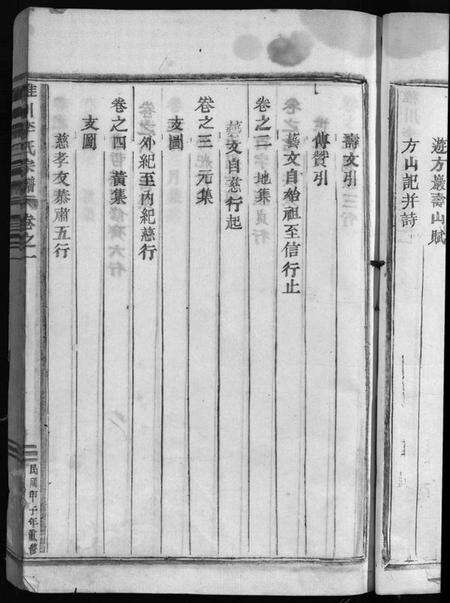 遊方巖壽山賦
方山記并詩
壽文引
傳贊引
藝文自始祖至信行止
卷之二 地集
藝文自慈行起
卷之三 元集
支圖
外紀至內紀慈行
卷之四 黃集
支圖
慈孝友恭肅五行
李氏宗譜 卷之一
民國甲子年重修